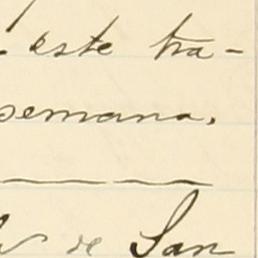 este tra-
semana.
de San